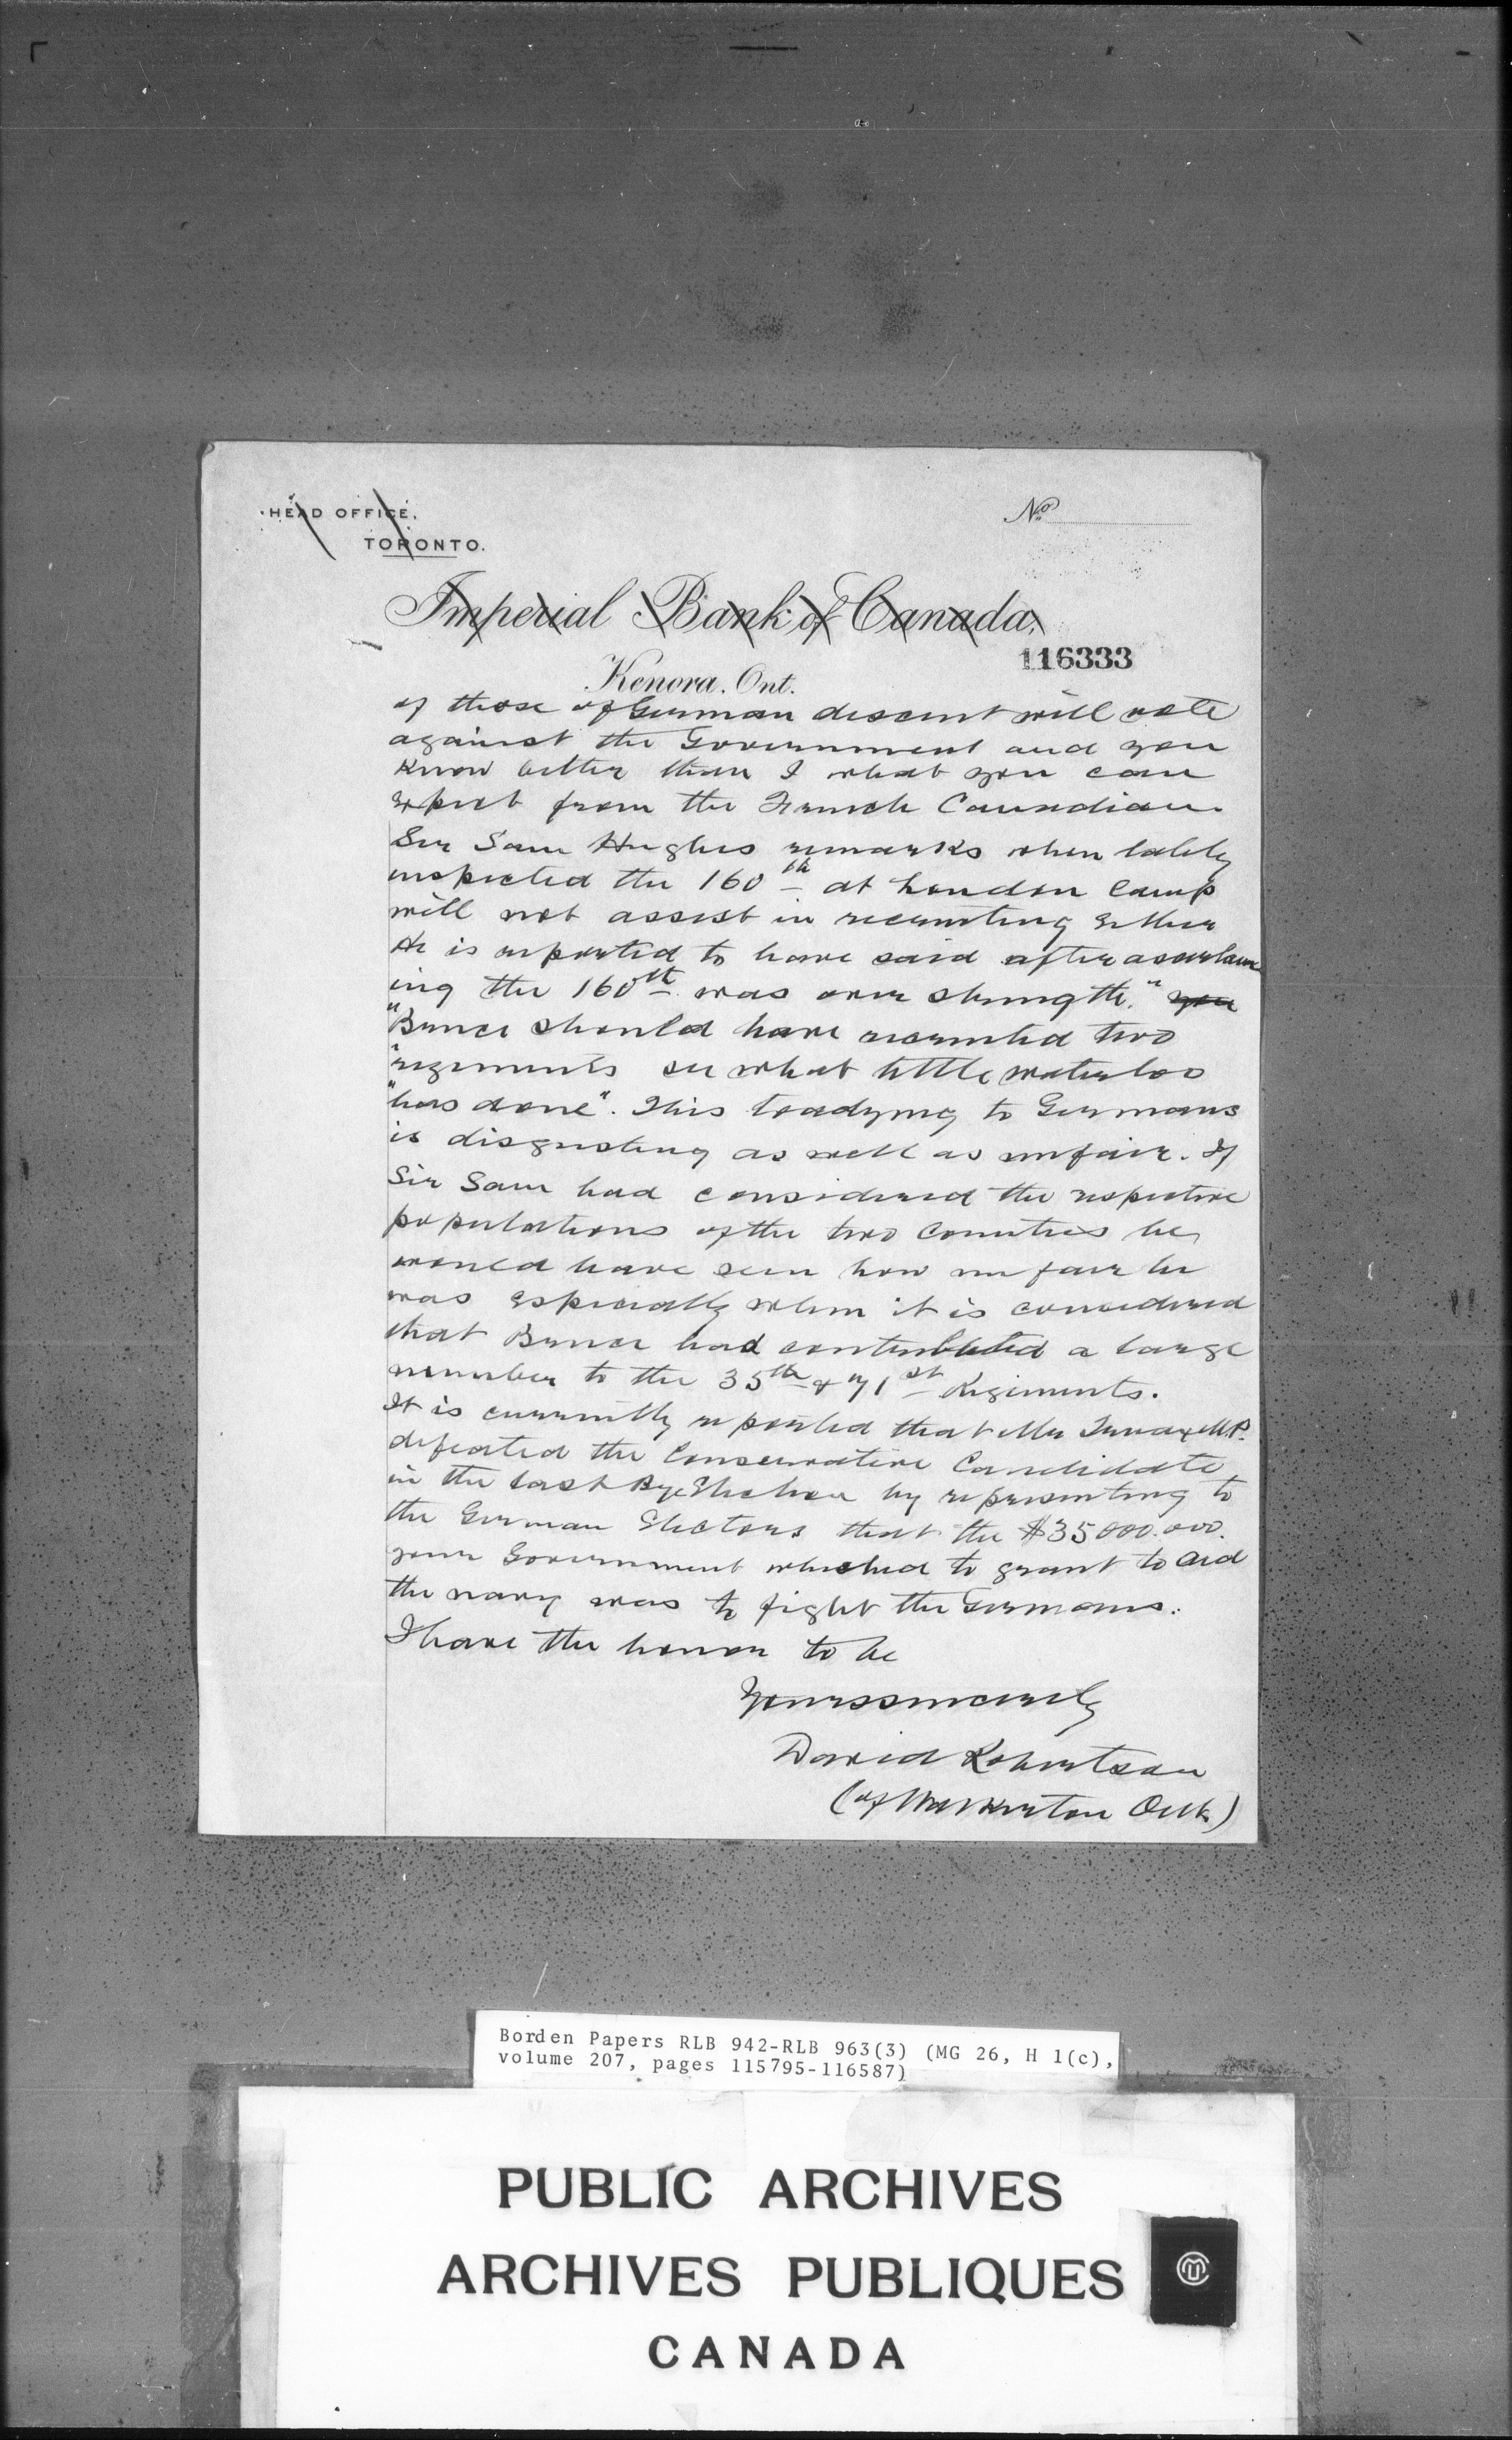 HEAD OFFICE,
TORONTO.
No
Imperial Bank of Canada.
116333
Kenora. Ont.
of those of German descent will vote
against the Government and you
Know better than I what you can
Expect from the French Canadian.
Sir Sam Hughes remarks when lately
inspected the 160th at London Camp
will not assist in recruiting Either
He is reported to have said after ascertain
ing the 160th was over strength." you
"Bruce should have recruited two
"regiments see what little Waterloo
"has done". This toadying to Germans
is disgusting as well as unfair. If
Sir Sam had considered the respective
populations of the two Counties he
would have seen how unfair he
was Especially when it is considered
that Bruce had contributed a large
number to the 35th & 71st Regiments.
It is currently reported that Mr Truax M.P.
defeated the Conservative Candidate
in the last Bye Election by representing to
the German Electors that the $35000.000.
your Government wished to grant to aid
the navy was to fight the Germans.
I have the honor to be
Yours sincerely
David Robertson
(of Walkerton Ont.)
Borden Papers RLB 942-RLB 963(3) (MG 26, H 1(c),
volume 207, pages 115795-116587)
PUBLIC ARCHIVES
ARCHIVES PUBLIQUES
CANADA